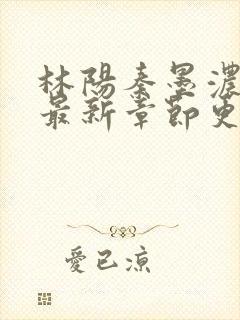 林陽秦墨濃
最新章節更
愛已涼